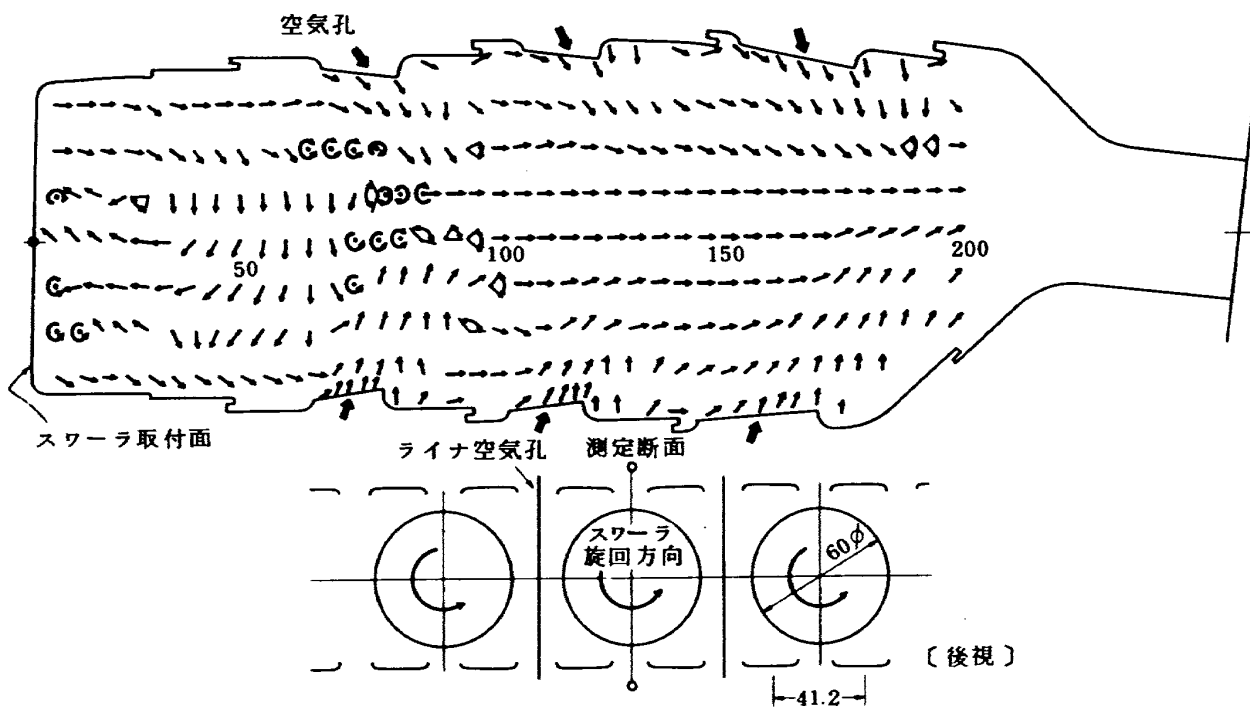 空気孔
50
100
150
200
スワーラ取付面
ライナ空気孔
測定断面
スワーラ
旋回方向
60φ
〔後視〕
41.2